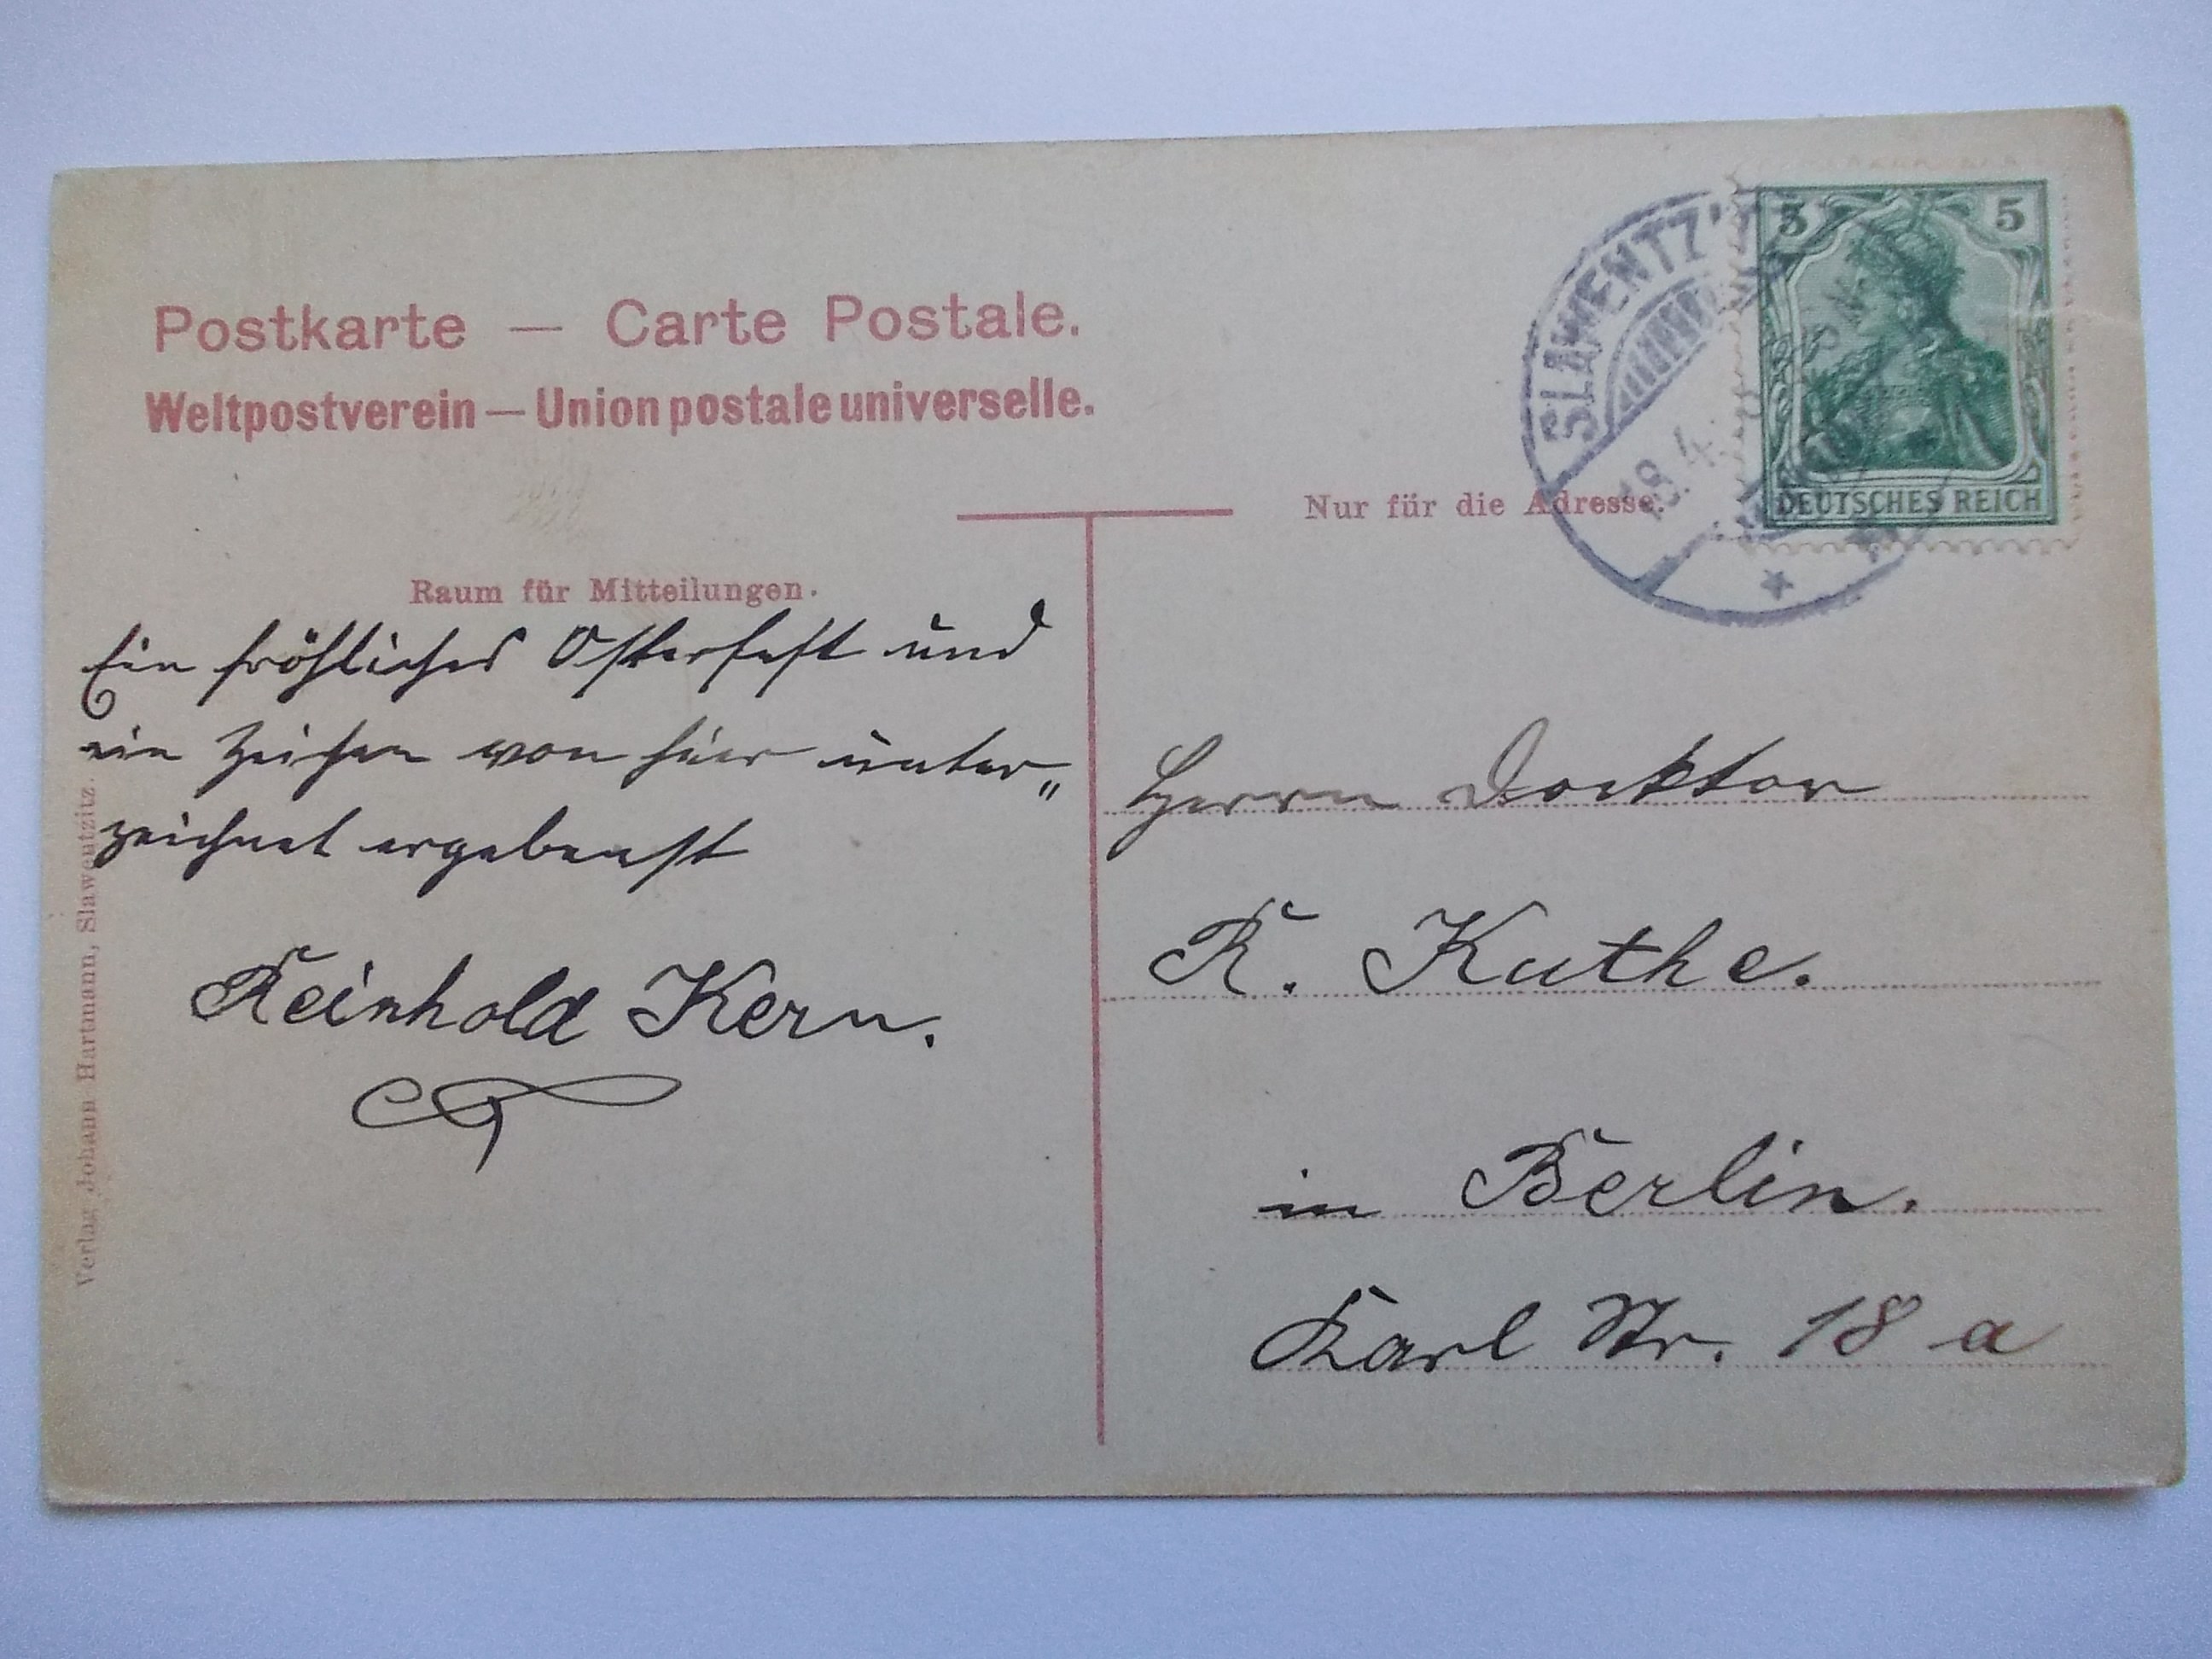 Postkarte — Carte Postale.
Weltpostverein — Union postale universelle.
Raum für Mitteilungen.
Ein fröhliches Osterfest und
ein Zeichen von hier unter„
zeichnet ergebenst
Reinhold Kern.
Verlag Johann Hartmann, Slawentzitz.
SLAWENTZ
18.4.
5 5
DEUTSCHES REICH
Nur für die Adresse.
Herrn Docktor
R. Kuthe.
in Berlin.
Karl Str. 18 a